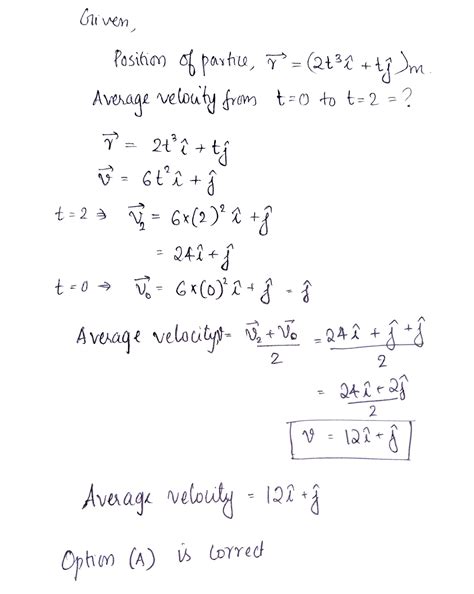 Given,
Position of partice, r⃗ = (2t³î + tĵ)m.
Average velocity from t=0 to t=2 = ?
r⃗ = 2t³î + tĵ
v⃗ = 6t²î + ĵ
t=2 ⇒ v⃗₂ = 6×(2)²î + ĵ
= 24î + ĵ
t=0 → v⃗₀ = 6×(0)²î + ĵ = ĵ
Average velocity, v = (v⃗₂ + v⃗₀)/2 = (24î + ĵ + ĵ)/2
= (24î + 2ĵ)/2
v = 12î + ĵ
Average velocity = 12î + ĵ
Option (A) is correct